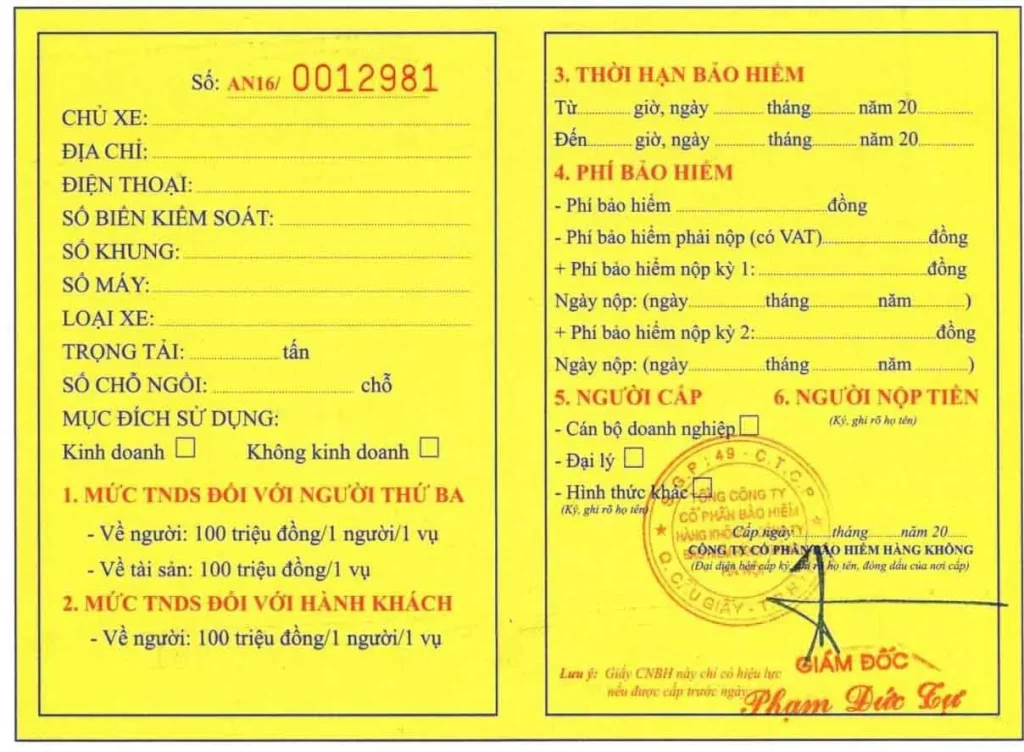 Số: AN16/ 0012981
CHỦ XE:
ĐỊA CHỈ:
ĐIỆN THOẠI:
SỐ BIỂN KIỂM SOÁT:
SỐ KHUNG:
SỐ MÁY:
LOẠI XE:
TRỌNG TẢI: tấn
SỐ CHỖ NGỒI: chỗ
MỤC ĐÍCH SỬ DỤNG:
Kinh doanh ☐ Không kinh doanh ☐
1. MỨC TNDS ĐỐI VỚI NGƯỜI THỨ BA
- Về người: 100 triệu đồng/1 người/1 vụ
- Về tài sản: 100 triệu đồng/1 vụ
2. MỨC TNDS ĐỐI VỚI HÀNH KHÁCH
- Về người: 100 triệu đồng/1 người/1 vụ
3. THỜI HẠN BẢO HIỂM
Từ giờ, ngày tháng năm 20
Đến giờ, ngày tháng năm 20
4. PHÍ BẢO HIỂM
- Phí bảo hiểm đồng
- Phí bảo hiểm phải nộp (có VAT) đồng
+ Phí bảo hiểm nộp kỳ 1: đồng
Ngày nộp: (ngày tháng năm )
+ Phí bảo hiểm nộp kỳ 2: đồng
Ngày nộp: (ngày tháng năm )
5. NGƯỜI CẤP 6. NGƯỜI NỘP TIỀN
(Ký, ghi rõ họ tên)
- Cán bộ doanh nghiệp ☐
- Đại lý ☐
- Hình thức khác ☐
(Ký, ghi rõ họ tên)
S.G.P: 49 - C.T.C.P
TỔNG CÔNG TY
CỔ PHẦN BẢO HIỂM
HÀNG KHÔNG
HÀ NỘI
Q. CẦU GIẤY - T.P H
Cấp ngày tháng năm 20
CÔNG TY CỔ PHẦN BẢO HIỂM HÀNG KHÔNG
(Đại diện bên cấp ký, ghi rõ họ tên, đóng dấu của nơi cấp)
GIÁM ĐỐC
Phạm Đức Tự
Lưu ý: Giấy CNBH này chỉ có hiệu lực
nếu được cấp trước ngày